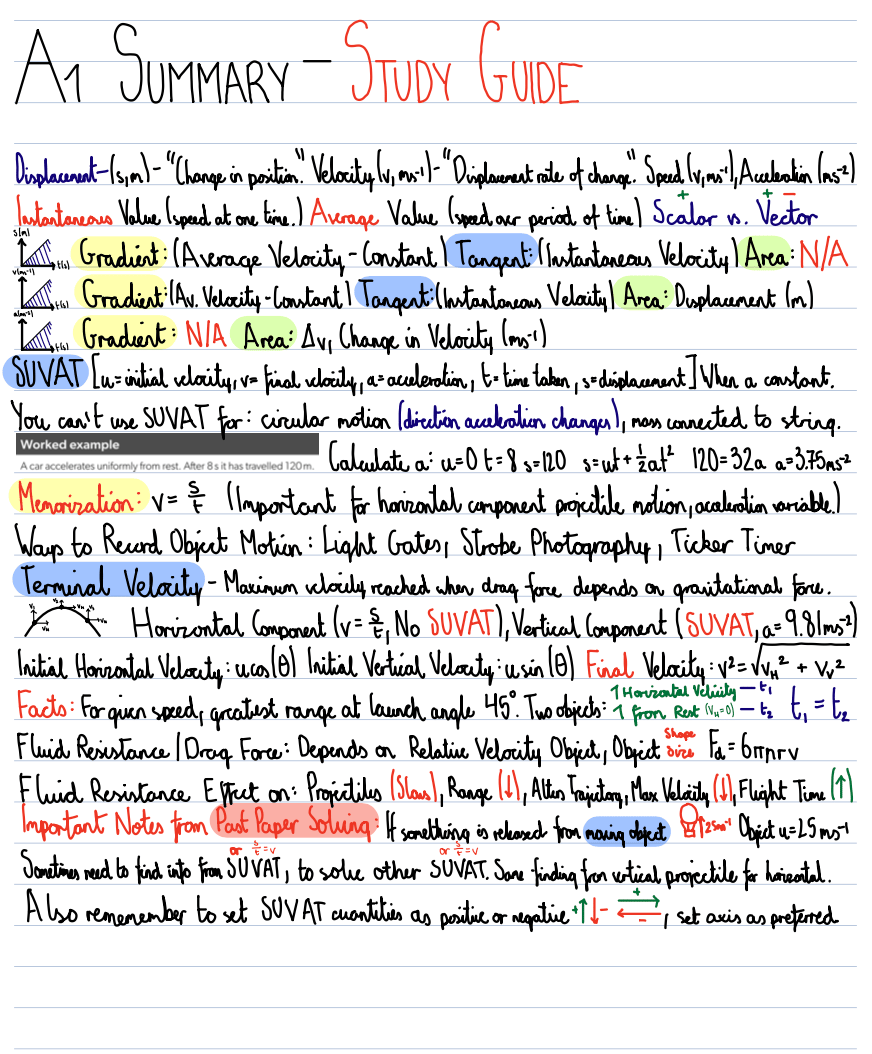 A1 SUMMARY - STUDY GUIDE
Displacement-(s,m)-"Change in position." Velocity (v, ms⁻¹)-"Displacement rate of change." Speed (v, ms⁻¹), Acceleration (ms⁻²)
Instantaneous Value (speed at one time.) Average Value (speed over period of time) Scalar + vs. Vector + -
s(m) t(s) Gradient: (Average Velocity-Constant) Tangent: (Instantaneous Velocity) Area: N/A
v(ms⁻¹) t(s) Gradient: (Av. Velocity-Constant) Tangent: (Instantaneous Velocity) Area: Displacement (m)
a(ms⁻²) t(s) Gradient: N/A Area: Δv, Change in Velocity (ms⁻¹)
SUVAT [u=initial velocity, v= final velocity, a=acceleration, t=time taken, s=displacement] When a constant.
You can't use SUVAT for: circular motion (direction acceleration changes), mass connected to string.
Worked example
A car accelerates uniformly from rest. After 8 s it has travelled 120 m. Calculate a: u=0 t=8 s=120 s=ut+½at² 120=32a a=3.75ms⁻²
Memorization: v= s/t (Important for horizontal component projectile motion, acceleration variable.)
Ways to Record Object Motion: Light Gates, Strobe Photography, Ticker Timer
Terminal Velocity - Maximum velocity reached when drag force depends on gravitational force.
Horizontal Component (v= s/t, No SUVAT), Vertical Component (SUVAT, a=9.81ms⁻²)
Initial Horizontal Velocity: ucos(θ) Initial Vertical Velocity: usin(θ) Final Velocity: v²=√(v_H² + v_V²)
Facts: For given speed, greatest range at launch angle 45°. Two objects: 1 Horizontal Velicity — t₁ 1 from Rest (V_H=0) — t₂ t₁ = t₂
Fluid Resistance / Drag Force: Depends on Relative Velocity Object, Object Shape Size F_d = 6πηrv
Fluid Resistance Effect on: Projectiles (Slows), Range (↓), Alters Trajectory, Max Velocity (↓), Flight Time (↑)
Important Notes from Past Paper Solving: If something is released from moving object ↑25ms⁻¹ Object u=25ms⁻¹
Sometimes need to find info from SUVAT or s/t=v, to solve other SUVAT or s/t=v. Same finding from vertical projectile for horizontal.
Also rememember to set SUVAT quantities as positive or negative +↑↓- + → ← -, set axis as preferred